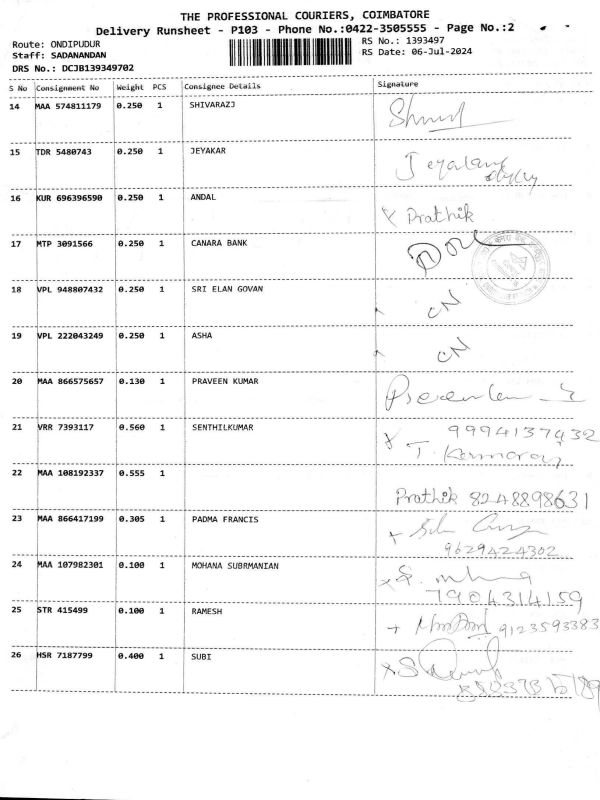 THE PROFESSIONAL COURIERS, COIMBATORE
Delivery Runsheet - P103 - Phone No.:0422-3505555 - Page No.:2
Route: ONDIPUDUR
RS No.: 1393497
Staff: SADANANDAN
RS Date: 06-Jul-2024
DRS No.: DCJB139349702
S No Consignment No Weight PCS Consignee Details Signature
14 MAA 574811179 0.250 1 SHIVARAZJ
15 TDR 5480743 0.250 1 JEYAKAR
16 KUR 696396590 0.250 1 ANDAL
Prathik
17 MTP 3091566 0.250 1 CANARA BANK
18 VPL 948807432 0.250 1 SRI ELAN GOVAN
CN
19 VPL 222043249 0.250 1 ASHA
CN
20 MAA 866575657 0.130 1 PRAVEEN KUMAR
21 VRR 7393117 0.560 1 SENTHILKUMAR
9994137432
22 MAA 108192337 0.555 1
Prathik 8248898631
23 MAA 866417199 0.305 1 PADMA FRANCIS
9629424302
24 MAA 107982301 0.100 1 MOHANA SUBRMANIAN
7904314159
25 STR 415499 0.100 1 RAMESH
9123593383
26 HSR 7187799 0.400 1 SUBI